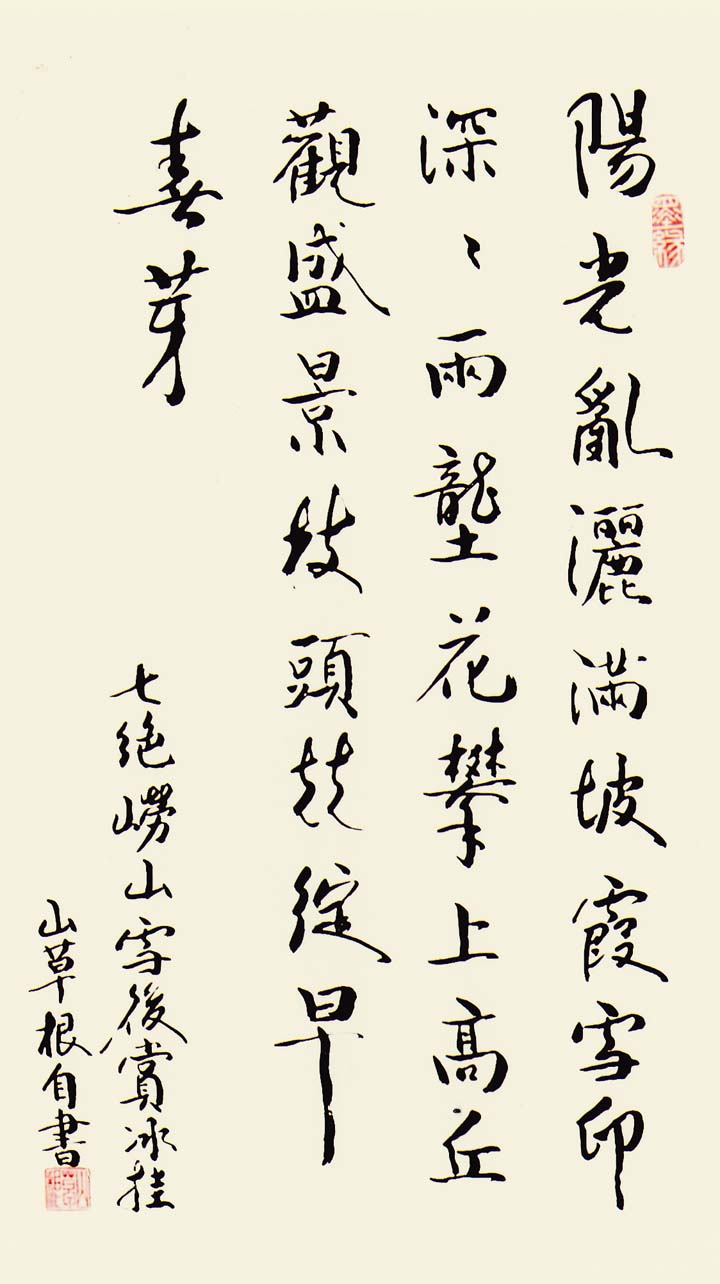 陽光亂灑滿坡霞雪印
深〻兩壟花攀上高丘
觀盛景枝頭競綻早
春芽
七絕嶗山雪後賞冰挂
山草根自書